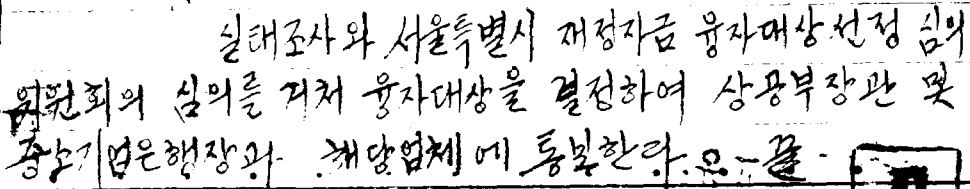 실태조사와 서울특별시 재정자금 융자대상선정 심의
위원회의 심의를 거쳐 융자대상을 결정하여 상공부장관 및
중소기업은행장과 해당업체에 통보한다. 끝.